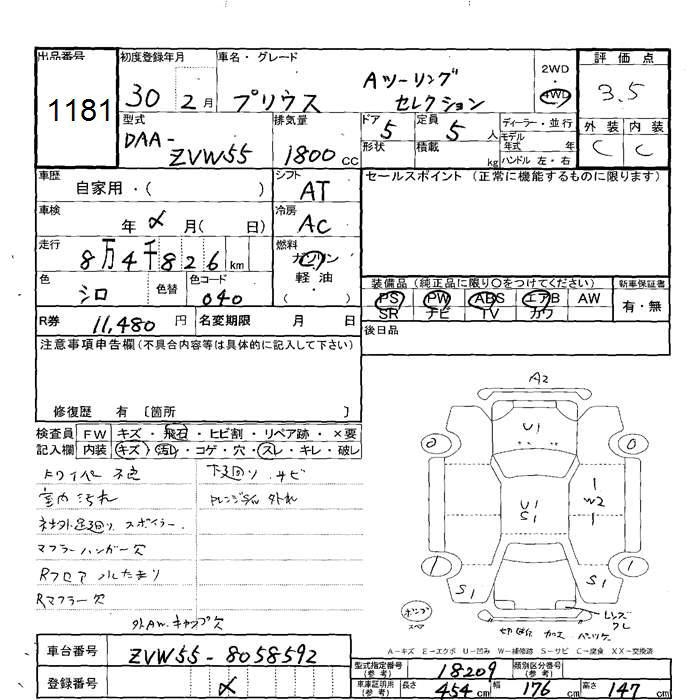 出品番号 初度登録年月 車名・グレード 2WD 評価点
1181 30 2月 プリウス Aツーリング セレクション 4WD 3.5
型式 排気量 ドア 5 定員 5人 ディーラー・並行 外装 内装
DAA-ZVW55 1800cc 形状 積載 kg モデル年式 年 C C
ハンドル 左・右
車歴 自家用・( ) シフト AT セールスポイント(正常に機能するものに限ります)
車検 年 〆 月( 日) 冷房 AC
走行 8万4千826km 燃料 ガソリン
軽油・( )
色 シロ 色替 色コード 040 装備品(純正品に限り○をつけてください) 新車保証書
PS PW ABS エアB AW 有・無
SR ナビ TV カワ
R券 11,480円 名変期限 月 日 後日品
注意事項申告欄(不具合内容等は具体的に記入して下さい)
修復歴 有〔箇所 〕
検査員 FW キズ・飛石・ヒビ割・リペア跡・×要
記入欄 内装 キズ・汚レ・コゲ・穴・スレ・キレ・破レ
下廻り サビ
室内汚れ
社外足廻り スポイラー
マフラーハンガー欠
Rマフラー欠
外AW.キャップ欠
A2
U1
0 0
U1
S1
1
W2
1
1 1
S1 S1
スペア
A-キズ E-エクボ U-凹み W-補修跡 S-サビ C-腐食 XX-交換済
車台番号 ZVW55-8058592 型式指定番号(参考) 18209 類別区分番号(参考)
登録番号 〆 車庫証明用(参考) 長さ 454cm 幅 176cm 高さ 147cm